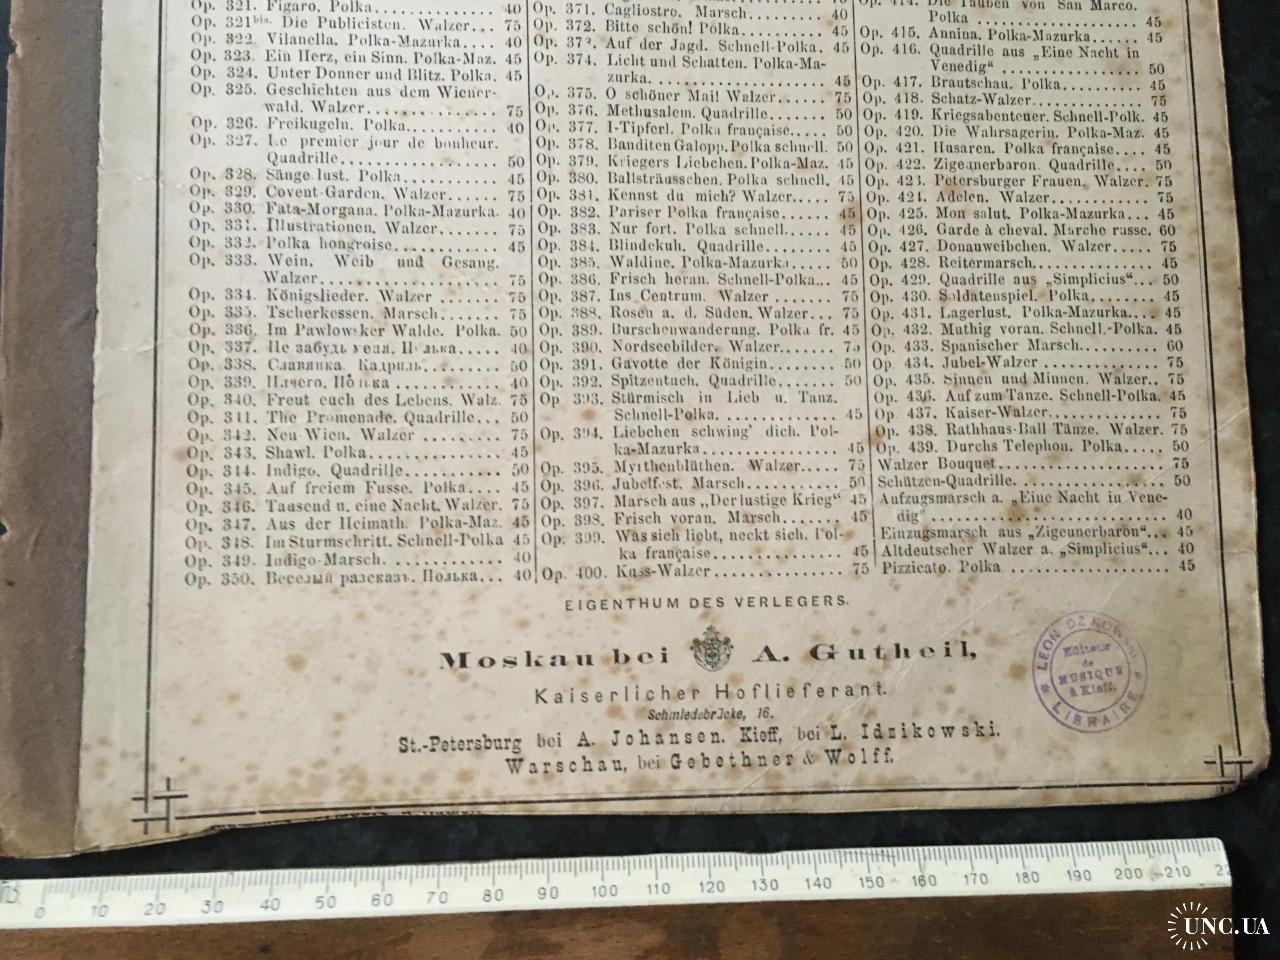 Op. 321. Figaro. Polka.................. 40
Op. 321bis. Die Publicisten. Walzer... 75
Op. 322. Vilanella. Polka-Mazurka.... 40
Op. 323. Ein Herz, ein Sinn. Polka-Maz. 45
Op. 324. Unter Donner und Blitz. Polka. 45
Op. 325. Geschichten aus dem Wiener-
wald. Walzer.................. 75
Op. 326. Freikugeln. Polka............. 40
Op. 327. Le premier jour de bonheur.
Quadrille..................... 50
Op. 328. Sängerslust. Polka............ 45
Op. 329. Covent-Garden. Walzer....... 75
Op. 330. Fata-Morgana. Polka-Mazurka. 40
Op. 331. Illustrationen. Walzer........ 75
Op. 332. Polka hongroise.............. 45
Op. 333. Wein, Weib und Gesang.
Walzer........................ 75
Op. 334. Königslieder. Walzer ........ 75
Op. 335. Tscherkessen. Marsch........ 75
Op. 336. Im Pawlowsker Walde. Polka. 50
Op. 337. Не забудь меня. Полька..... 40
Op. 338. Славянка. Кадриль......... 50
Op. 339. Ничего. Полька ............ 40
Op. 340. Freut euch des Lebens. Walz. 75
Op. 341. The Promenade. Quadrille... 50
Op. 342. Neu Wien. Walzer ......... 75
Op. 343. Shawl. Polka................ 45
Op. 344. Indigo. Quadrille............ 50
Op. 345. Auf freiem Fusse. Polka.... 45
Op. 346. Tausend u. eine Nacht. Walzer. 75
Op. 347. Aus der Heimath. Polka-Maz. 45
Op. 348. Im Sturmschritt. Schnell-Polka 45
Op. 349. Indigo-Marsch............... 40
Op. 350. Веселый разсказъ. Полька... 40
Op. 371. Cagliostro. Marsch............ 40
Op. 372. Bitte schön! Polka............ 45
Op. 373. Auf der Jagd. Schnell-Polka. 45
Op. 374. Licht und Schatten. Polka-Ma-
zurka......................... 45
Op. 375. O schöner Mai! Walzer...... 75
Op. 376. Methusalem. Quadrille........ 50
Op. 377. I-Tipferl. Polka française..... 50
Op. 378. Banditen Galopp. Polka schnell. 50
Op. 379. Kriegers Liebchen. Polka-Maz. 45
Op. 380. Ballsträusschen. Polka schnell. 45
Op. 381. Kennst du mich? Walzer..... 75
Op. 382. Pariser Polka française...... 45
Op. 383. Nur fort. Polka schnell...... 45
Op. 384. Blindekuh. Quadrille......... 45
Op. 385. Waldine. Polka-Mazurka...... 50
Op. 386. Frisch heran. Schnell-Polka... 45
Op. 387. Ins Centrum. Walzer ........ 75
Op. 388. Rosen a. d. Süden. Walzer... 75
Op. 389. Burschenwanderung. Polka fr. 45
Op. 390. Nordseebilder. Walzer....... 75
Op. 391. Gavotte der Königin......... 50
Op. 392. Spitzentuch. Quadrille........ 50
Op 393. Stürmisch in Lieb u. Tanz.
Schnell-Polka................. 45
Op. 394. Liebchen schwing' dich. Pol-
ka-Mazurka................... 45
Op. 395. Myrthenblüthen. Walzer..... 75
Op. 396. Jubelfest. Marsch........... 50
Op. 397. Marsch aus „Der lustige Krieg“ 45
Op. 398. Frisch voran. Marsch........ 45
Op. 399. Was sich liebt, neckt sich. Pol-
ka française.................. 45
Op. 400. Kuss-Walzer................ 75
Op. 414. Die Tauben von San Marco.
Polka ....................... 45
Op. 415. Annina. Polka-Mazurka...... 45
Op. 416. Quadrille aus „Eine Nacht in
Venedig“ .................... 50
Op. 417. Brautschau. Polka........... 45
Op. 418. Schatz-Walzer............... 75
Op. 419. Kriegsabenteuer. Schnell-Polk. 45
Op. 420. Die Wahrsagerin. Polka-Maz. 45
Op. 421. Husaren. Polka française.... 45
Op. 422. Zigeunerbaron. Quadrille.... 50
Op. 423. Petersburger Frauen. Walzer. 75
Op. 424. Adelen. Walzer.............. 75
Op. 425. Mon salut. Polka-Mazurka... 45
Op. 426. Garde à cheval. Marche russe. 60
Op. 427. Donauweibchen. Walzer..... 75
Op. 428. Reitermarsch................ 45
Op. 429. Quadrille aus „Simplicius“... 50
Op. 430. Soldatenspiel. Polka......... 45
Op. 431. Lagerlust. Polka-Mazurka.... 45
Op. 432. Muthig voran. Schnell.-Polka. 45
Op. 433. Spanischer Marsch........... 60
Op. 434. Jubel-Walzer ............... 75
Op. 435. Sinnen und Minnen. Walzer.. 75
Op. 436. Auf zum Tanze. Schnell-Polka. 45
Op. 437. Kaiser-Walzer............... 75
Op. 438. Rathhaus-Ball Tänze. Walzer. 75
Op. 439. Durchs Telephon. Polka...... 50
Walzer Bouquet...................... 75
Schützen-Quadrille................... 50
Aufzugsmarsch a. „Eine Nacht in Vene-
dig“............................. 40
Einzugsmarsch aus „Zigeunerbaron“... 45
Altdeutscher Walzer a. „Simplicius“... 40
Pizzicato. Polka ..................... 45
EIGENTHUM DES VERLEGERS.
Moskau bei A. Gutheil,
Kaiserlicher Hoflieferant.
Schmiedebrücke, 16.
St.-Petersburg bei A. Johansen. Kieff, bei L. Idzikowski.
Warschau, bei Gebethner & Wolff.
LEON IDZIKOWSKI
Editeur
de
MUSIQUE
à Kieff.
* LIBRAIRE *
0 10 20 30 40 50 60 70 80 90 100 110 120 130 140 150 160 170 180 190 200 210
UNC.UA